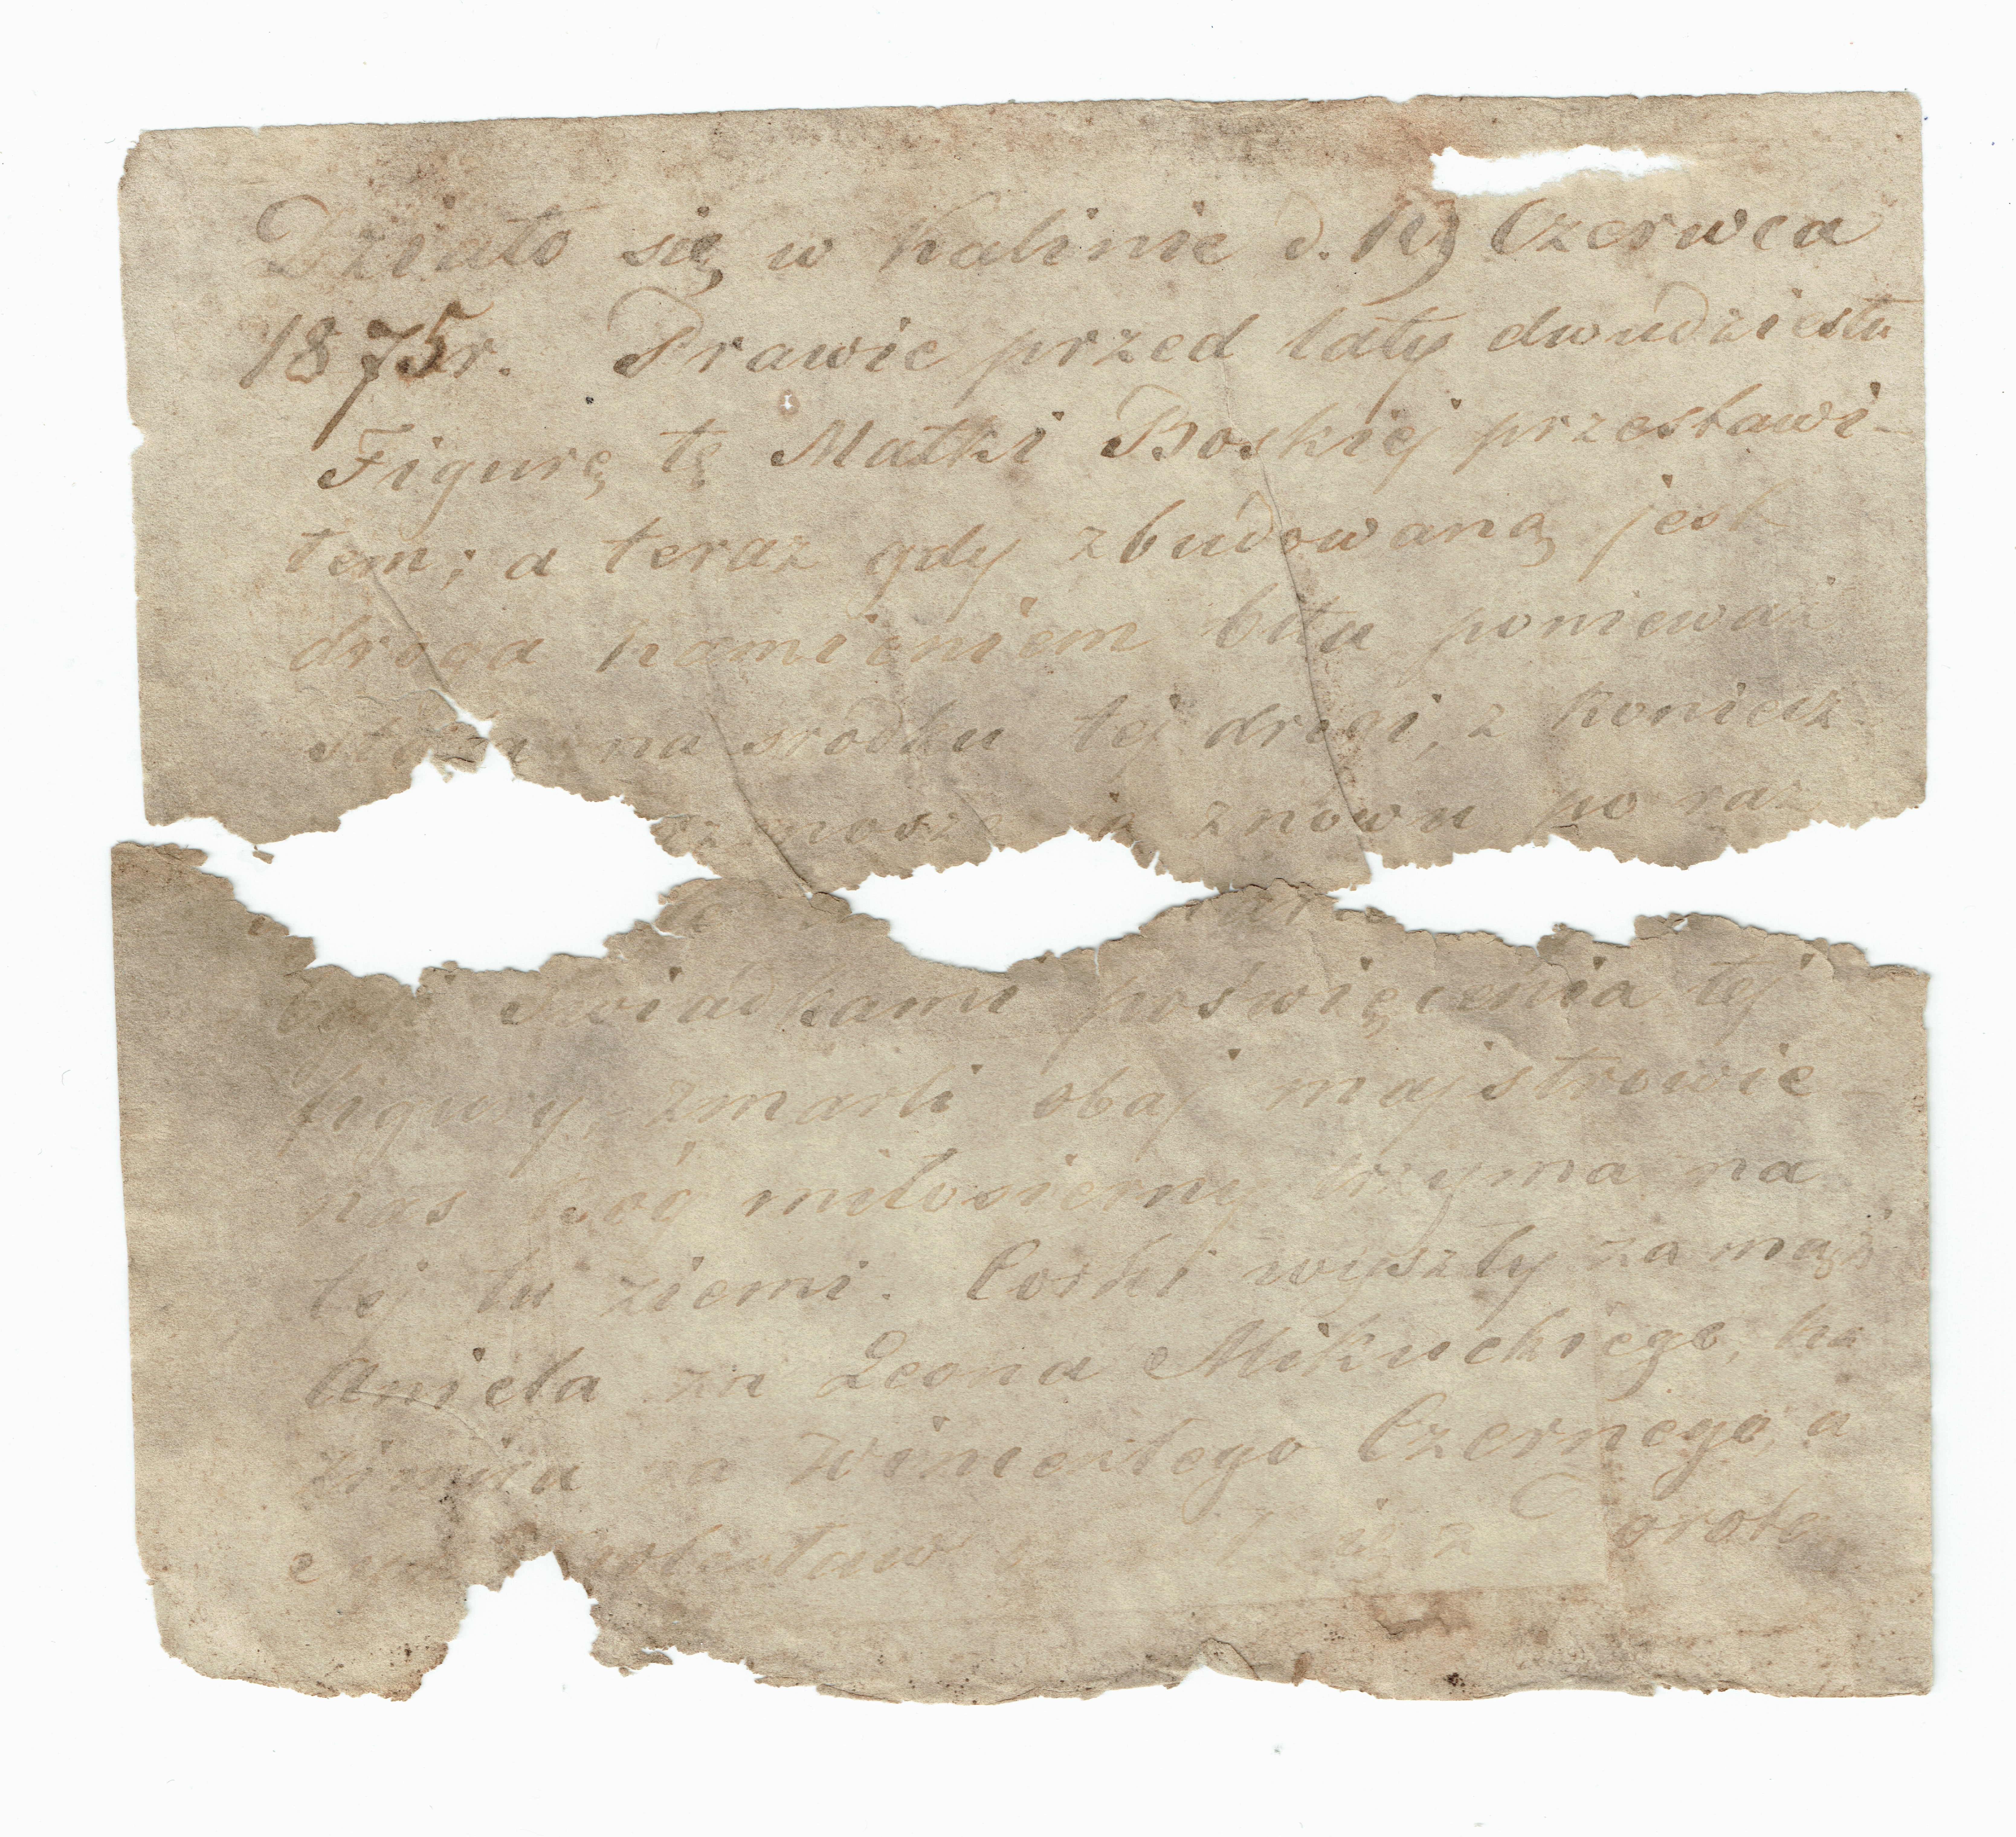 Działo się w Kalinie d. 19 Czerwca
1875 r. Prawie przed laty dwudziestu
Figurę tę Matki Boskiej przestawi-
łem; a teraz gdy zbudowaną jest
droga kamieniem bita, poniewaź
stoi na srodku tej drogi, z koniecz
znoszę ją znowu po raz
byli swiadkami poświęcenia tej
figury, zmarli obaj majstrowie
nas Bóg miłosierny trzyma na
tej tu ziemi. Corki wyszły za mąż
Aniela za Leona Mikuckiego, Ka
zimira za Wincentego Czernego, a